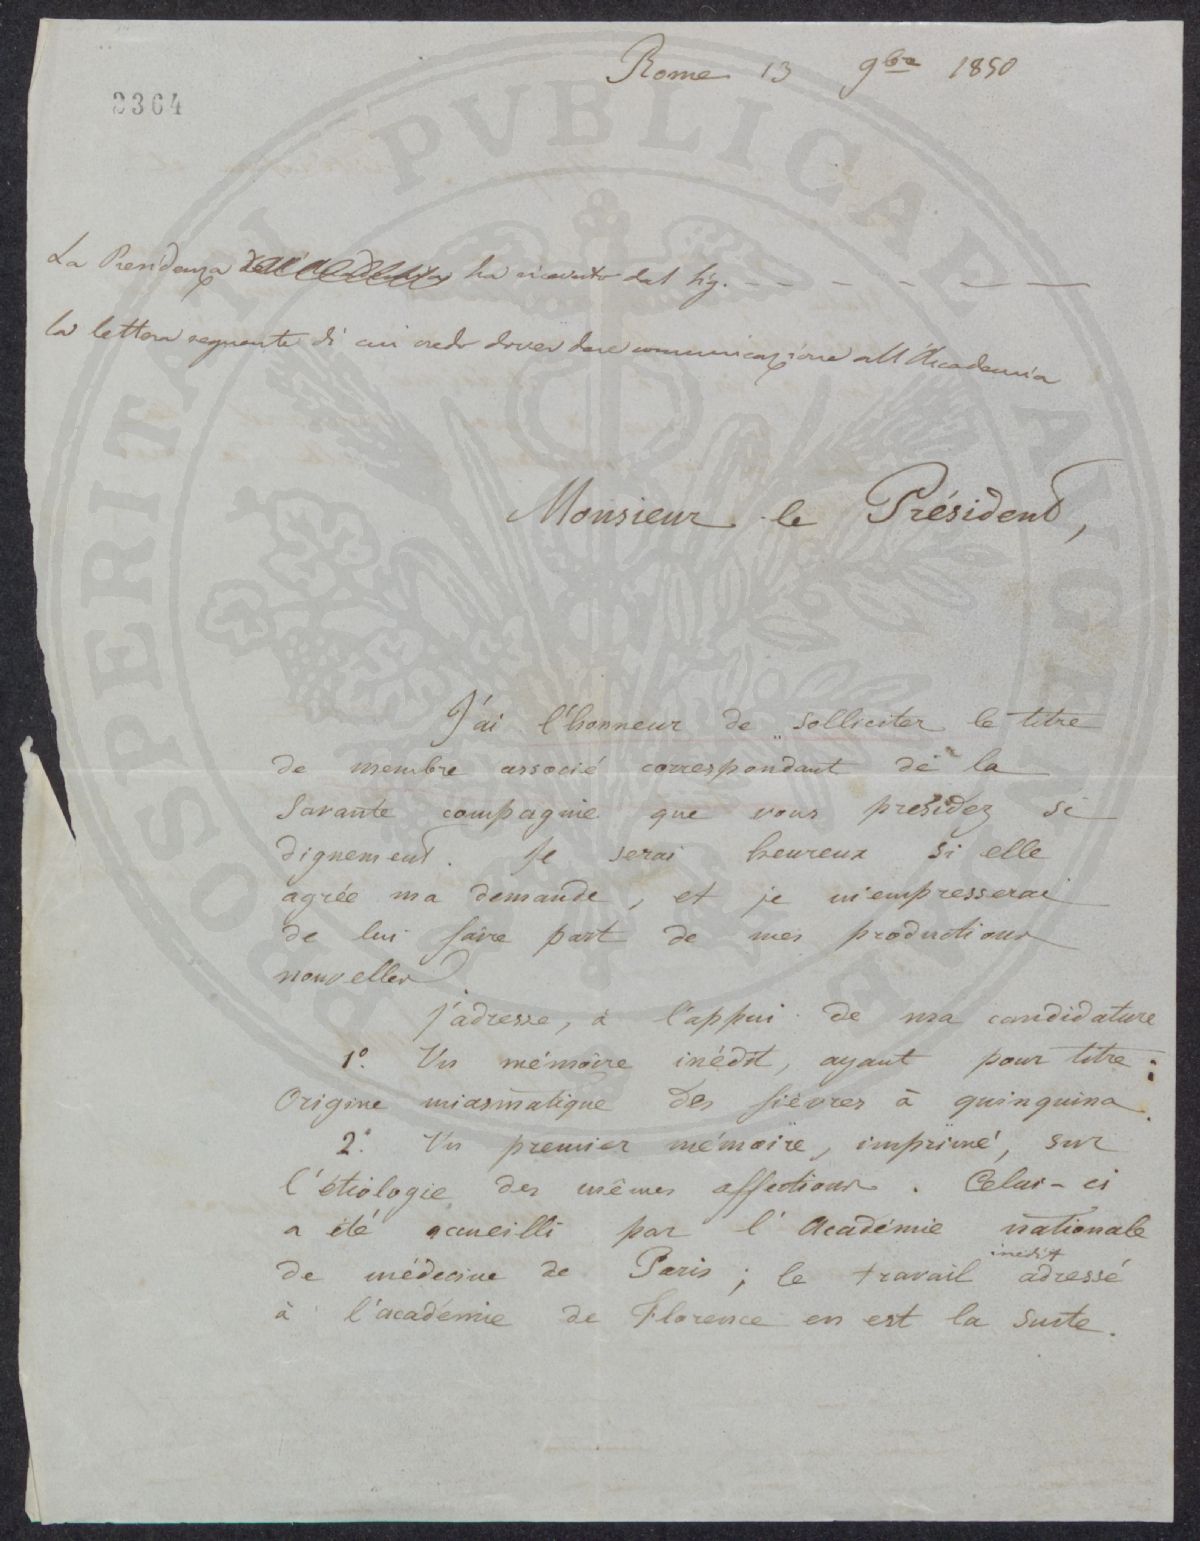 Rome 13 9bre 1850
2364
La Presidenza dell'Accademia ha ricevuto dal Sig. - - - - - -
la lettera seguente di cui credo dover dare comunicazione all'Accademia
Monsieur le Président,
J'ai l'honneur de solliciter le titre
de membre associé correspondant de la
Savante compagnie que vous presidez si
dignement. Je serai heureux si elle
agrée ma demande, et je m'empresserai
de lui faire part de mes productions
nouvelles.
J'adresse, à l'appui de ma candidature
1º. Un mémoire inédit, ayant pour titre :
Origine miasmatique des fièvres à quinquina.
2º. Un premier mémoire, imprimé, sur
l'étiologie des mêmes affections. Celui-ci
a été accueilli par l'Académie nationale
de médecine de Paris ; le travail inédit adressé
à l'académie de Florence en est la suite.
PROSPERITATI PVBLICAE AVGENDAE